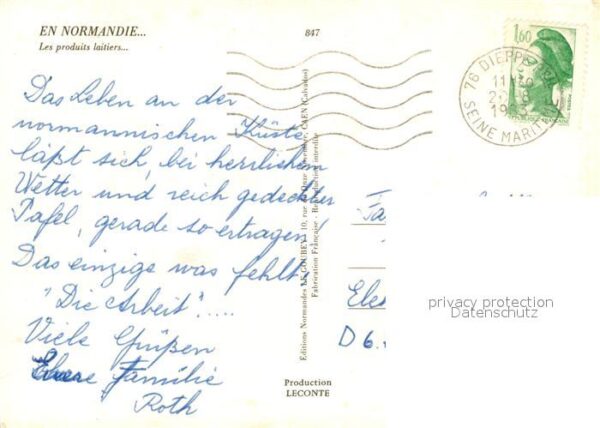 EN NORMANDIE...
Les produits laitiers...
847
1,60
76 DIEPPE
SEINE MARIT
Das Leben an der
normannischen Küste
läßt sich, bei herrlichem
Wetter und reich gedeckter
Tafel, gerade so ertragen!
Das einzige was fehlt:
"Die Arbeit".....
Viele Grüßen
Eure Familie
Roth
Editions Normandes LE GOUBEY - 10, rue CAEN (Calvados)
Fabrication Française - Reproduction interdite
Production
LECONTE
Fa
Ele
D 6.
privacy protection
Datenschutz